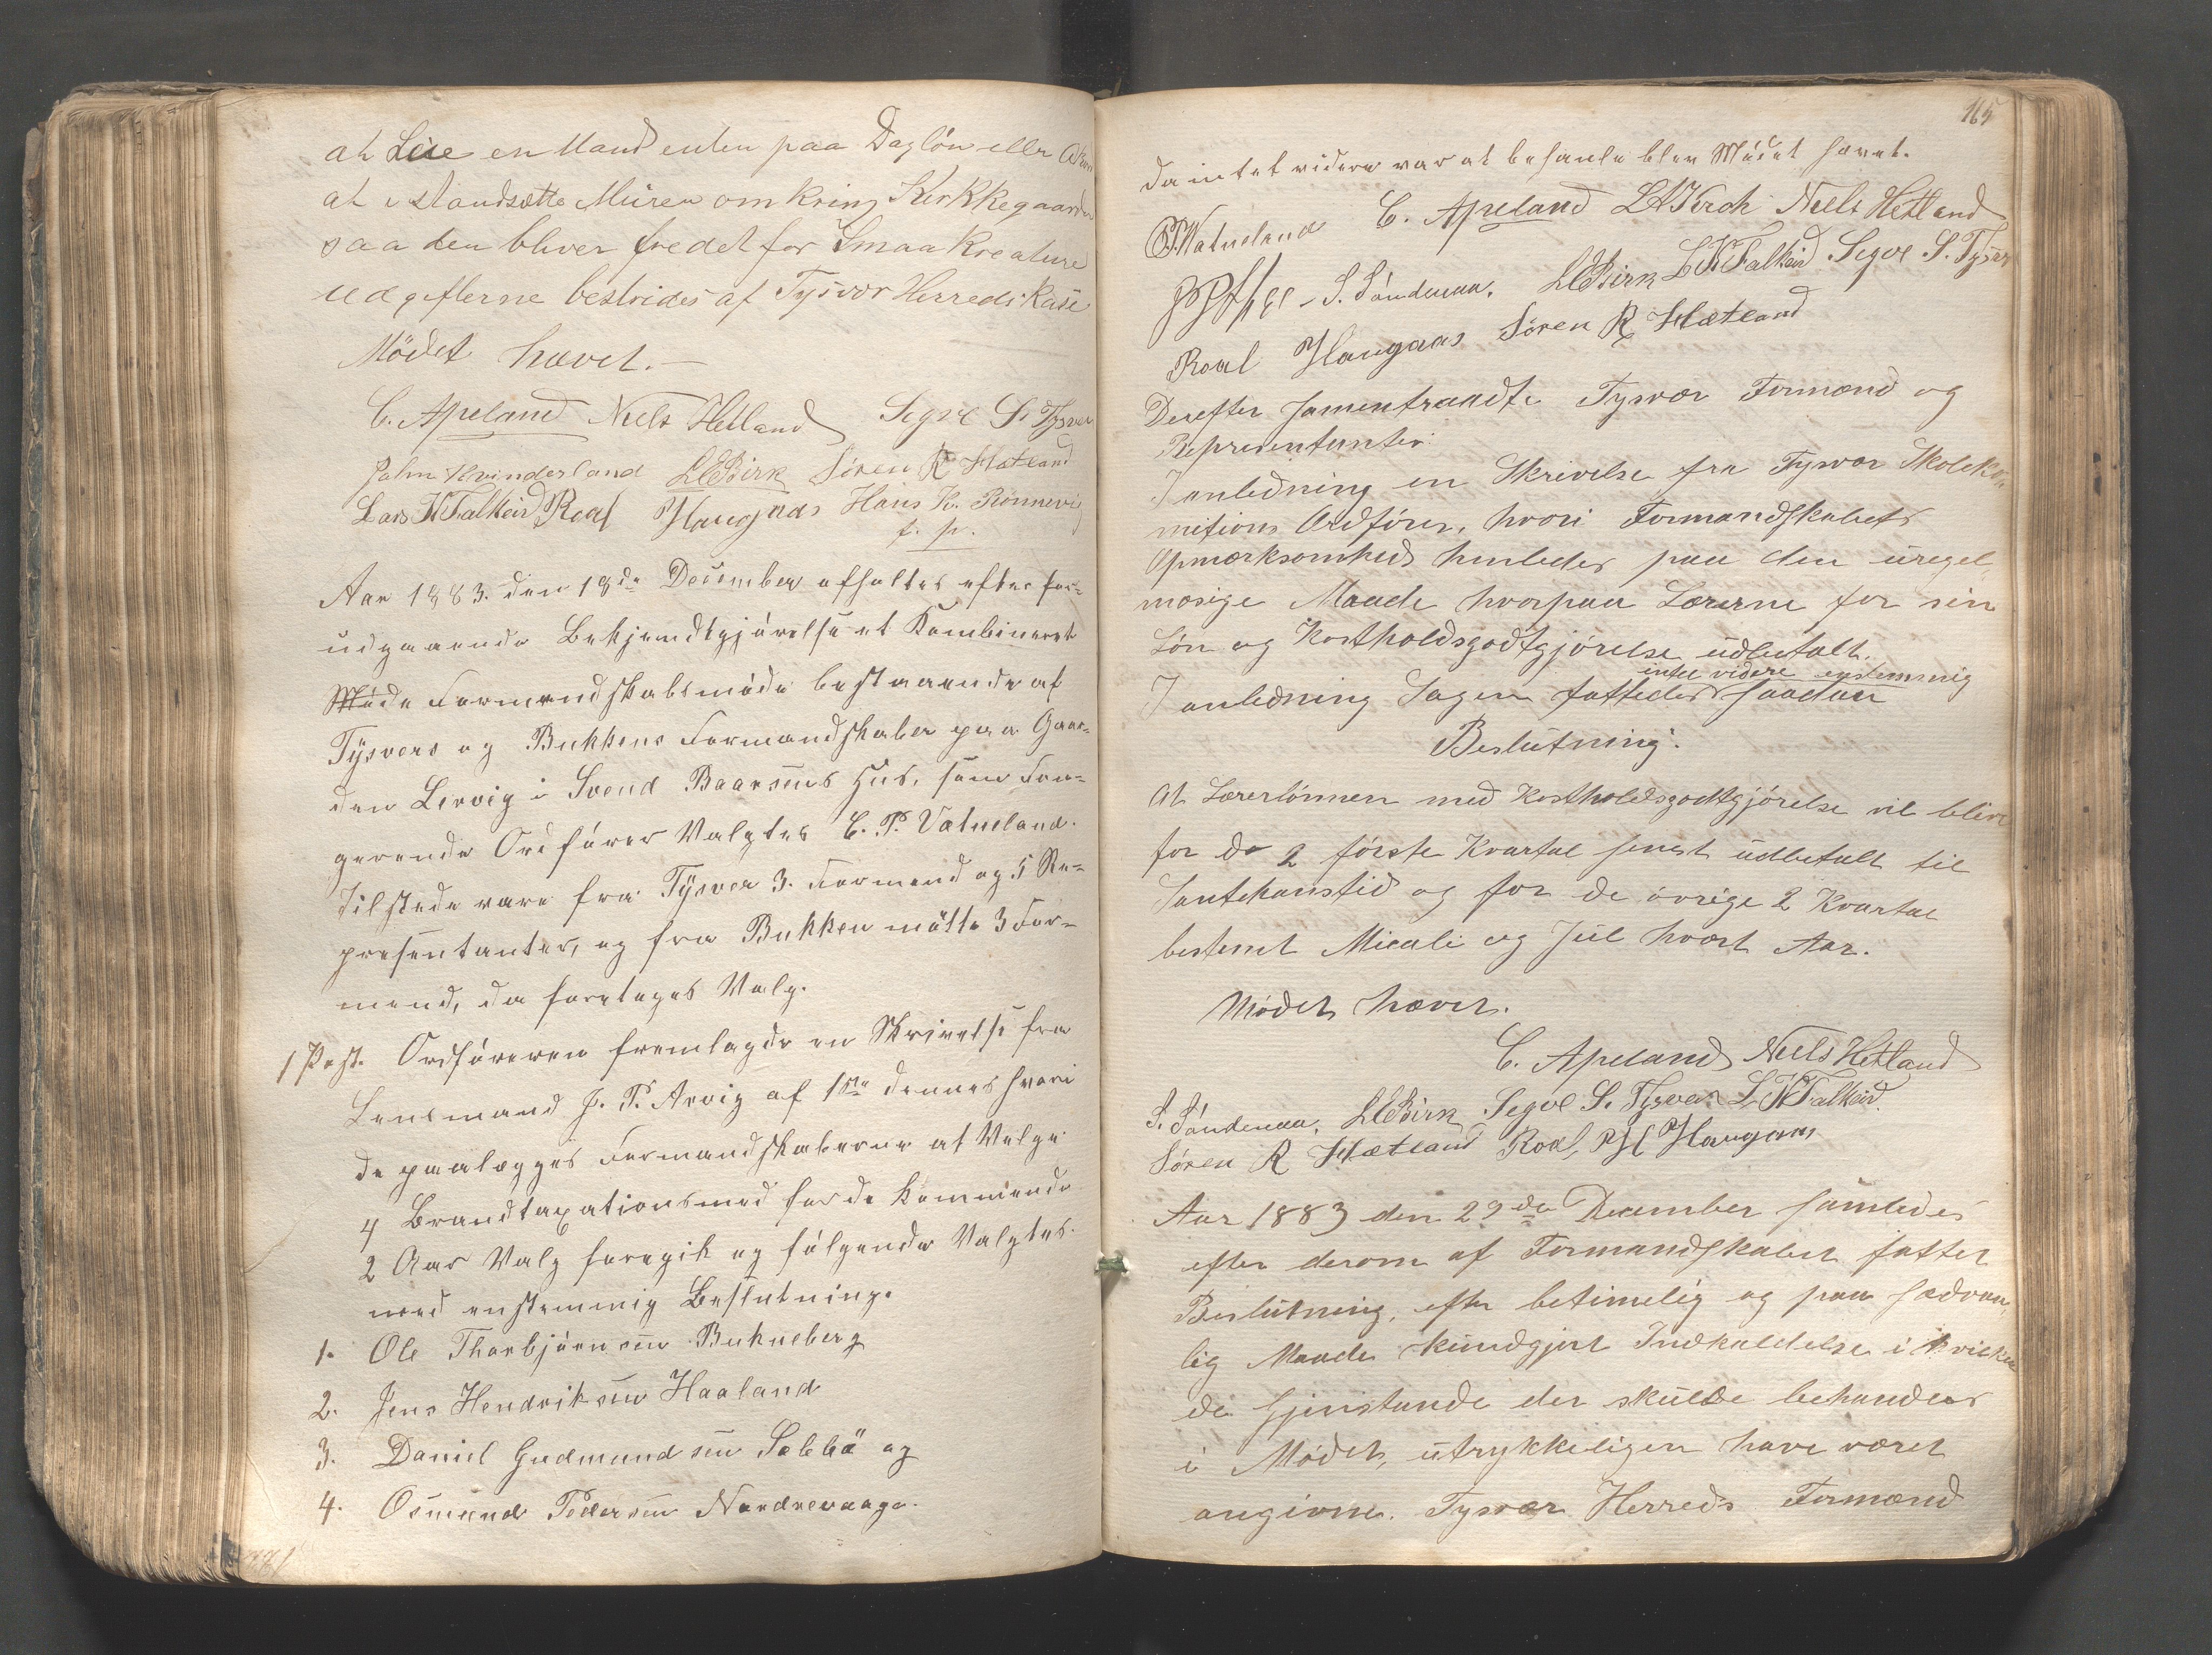 at Leie en Mand enten paa Daglön eller Akor
at istandsætte Muren omkring Kirkkegaarden
saa den bliver fredet for Smaa Kreature
Udgifterne bestrides af Tysvær Herreds Kase
Mödet hævet. —
C. Apeland Niels Hetland Segve S. Tysver
John Kvinderland LCBirk Sören R Hætland
Lars K Falkeid Roal Haugaas Hans K. Rönnevig
f. p.
Aar 1883. den 18de December afholtes efter for-
udgaaende Bekjendtgjörelse et Kombineret
Möde Formandskabsmöde bestaaende af
Tysvers og Bukkens Formandskaber paa Gaar-
den Lervig i Svend Baarsens Hus, som Fun-
gerende Ordförer Valgtes C. P. Vatneland.
Tilstede vare fra Tysver 3. Formend og 5 Re-
presentanter, og fra Bukken mötte 3 For-
mend, da foretoges Valg.
1 Post. Ordföreren fremlagde en Skrivelse fra
Lensmand J. P. Arvig af 1ste dennes hvori
de paalægges Formandskaberne at Velge
4 Brandtaxationsmed for de kommende
2 Aar Valg foregik og fölgende Valgtes
med enstemmig Beslutning.
1. Ole Thorbjörnsen Bukneberg
2. Jens Hendriksen Haaland
3. Daniel Gudmundsen Sebbö og
4. Osmund Pedersen Nordrevaage.
165
Da intet videre var at behanle blev Mödet hævet.
Vatneland C. Apeland Niels Hetland
S. Söndenaa. LCBirk L K Falkeid Segve S. Tysver
Roal Haugaas Sören R Hætland
Derefter sammentraadte Tysvær Formænd og
Representanter.
I anledning en Skrivelse fra Tysvær Skoleko-
mitions Ordförer, hvori Formandskabets
Opmærksomhed henledes paa den uregel-
mæsige Maade hvorpaa Lærerne for sin
Lön og Kostholdsgodtgjörelse udbetalt.
intet videre enstemmig
I anledning Sagen fattedes saadan
Beslutning:
At Lærerlönnen med Kostholdsgodtgjörelse vil blive
for de 2 förste Kvartal senest udbetalt til
Santehanstid og for de övrige 2 Kvartal
bestemt Micali og Jul hvert Aar.
Mödet hævet.
C. Apeland Niels Hetland
S. Söndenaa. LCBirk Segve S. Tysver L K Falkeid.
Sören R Hætland Roal H Haugaas
Aar 1883 den 29de December samledes
efter derom af Formandskabet fattet
Beslutning, efter betimelig og paa sædvan-
lig Maade kundgjort Indkaldelse i hvilken
de Gjenstande der skulde behandles
i Mödet, utrykkeligen have været
angivne. Tysvær Herreds Formænd